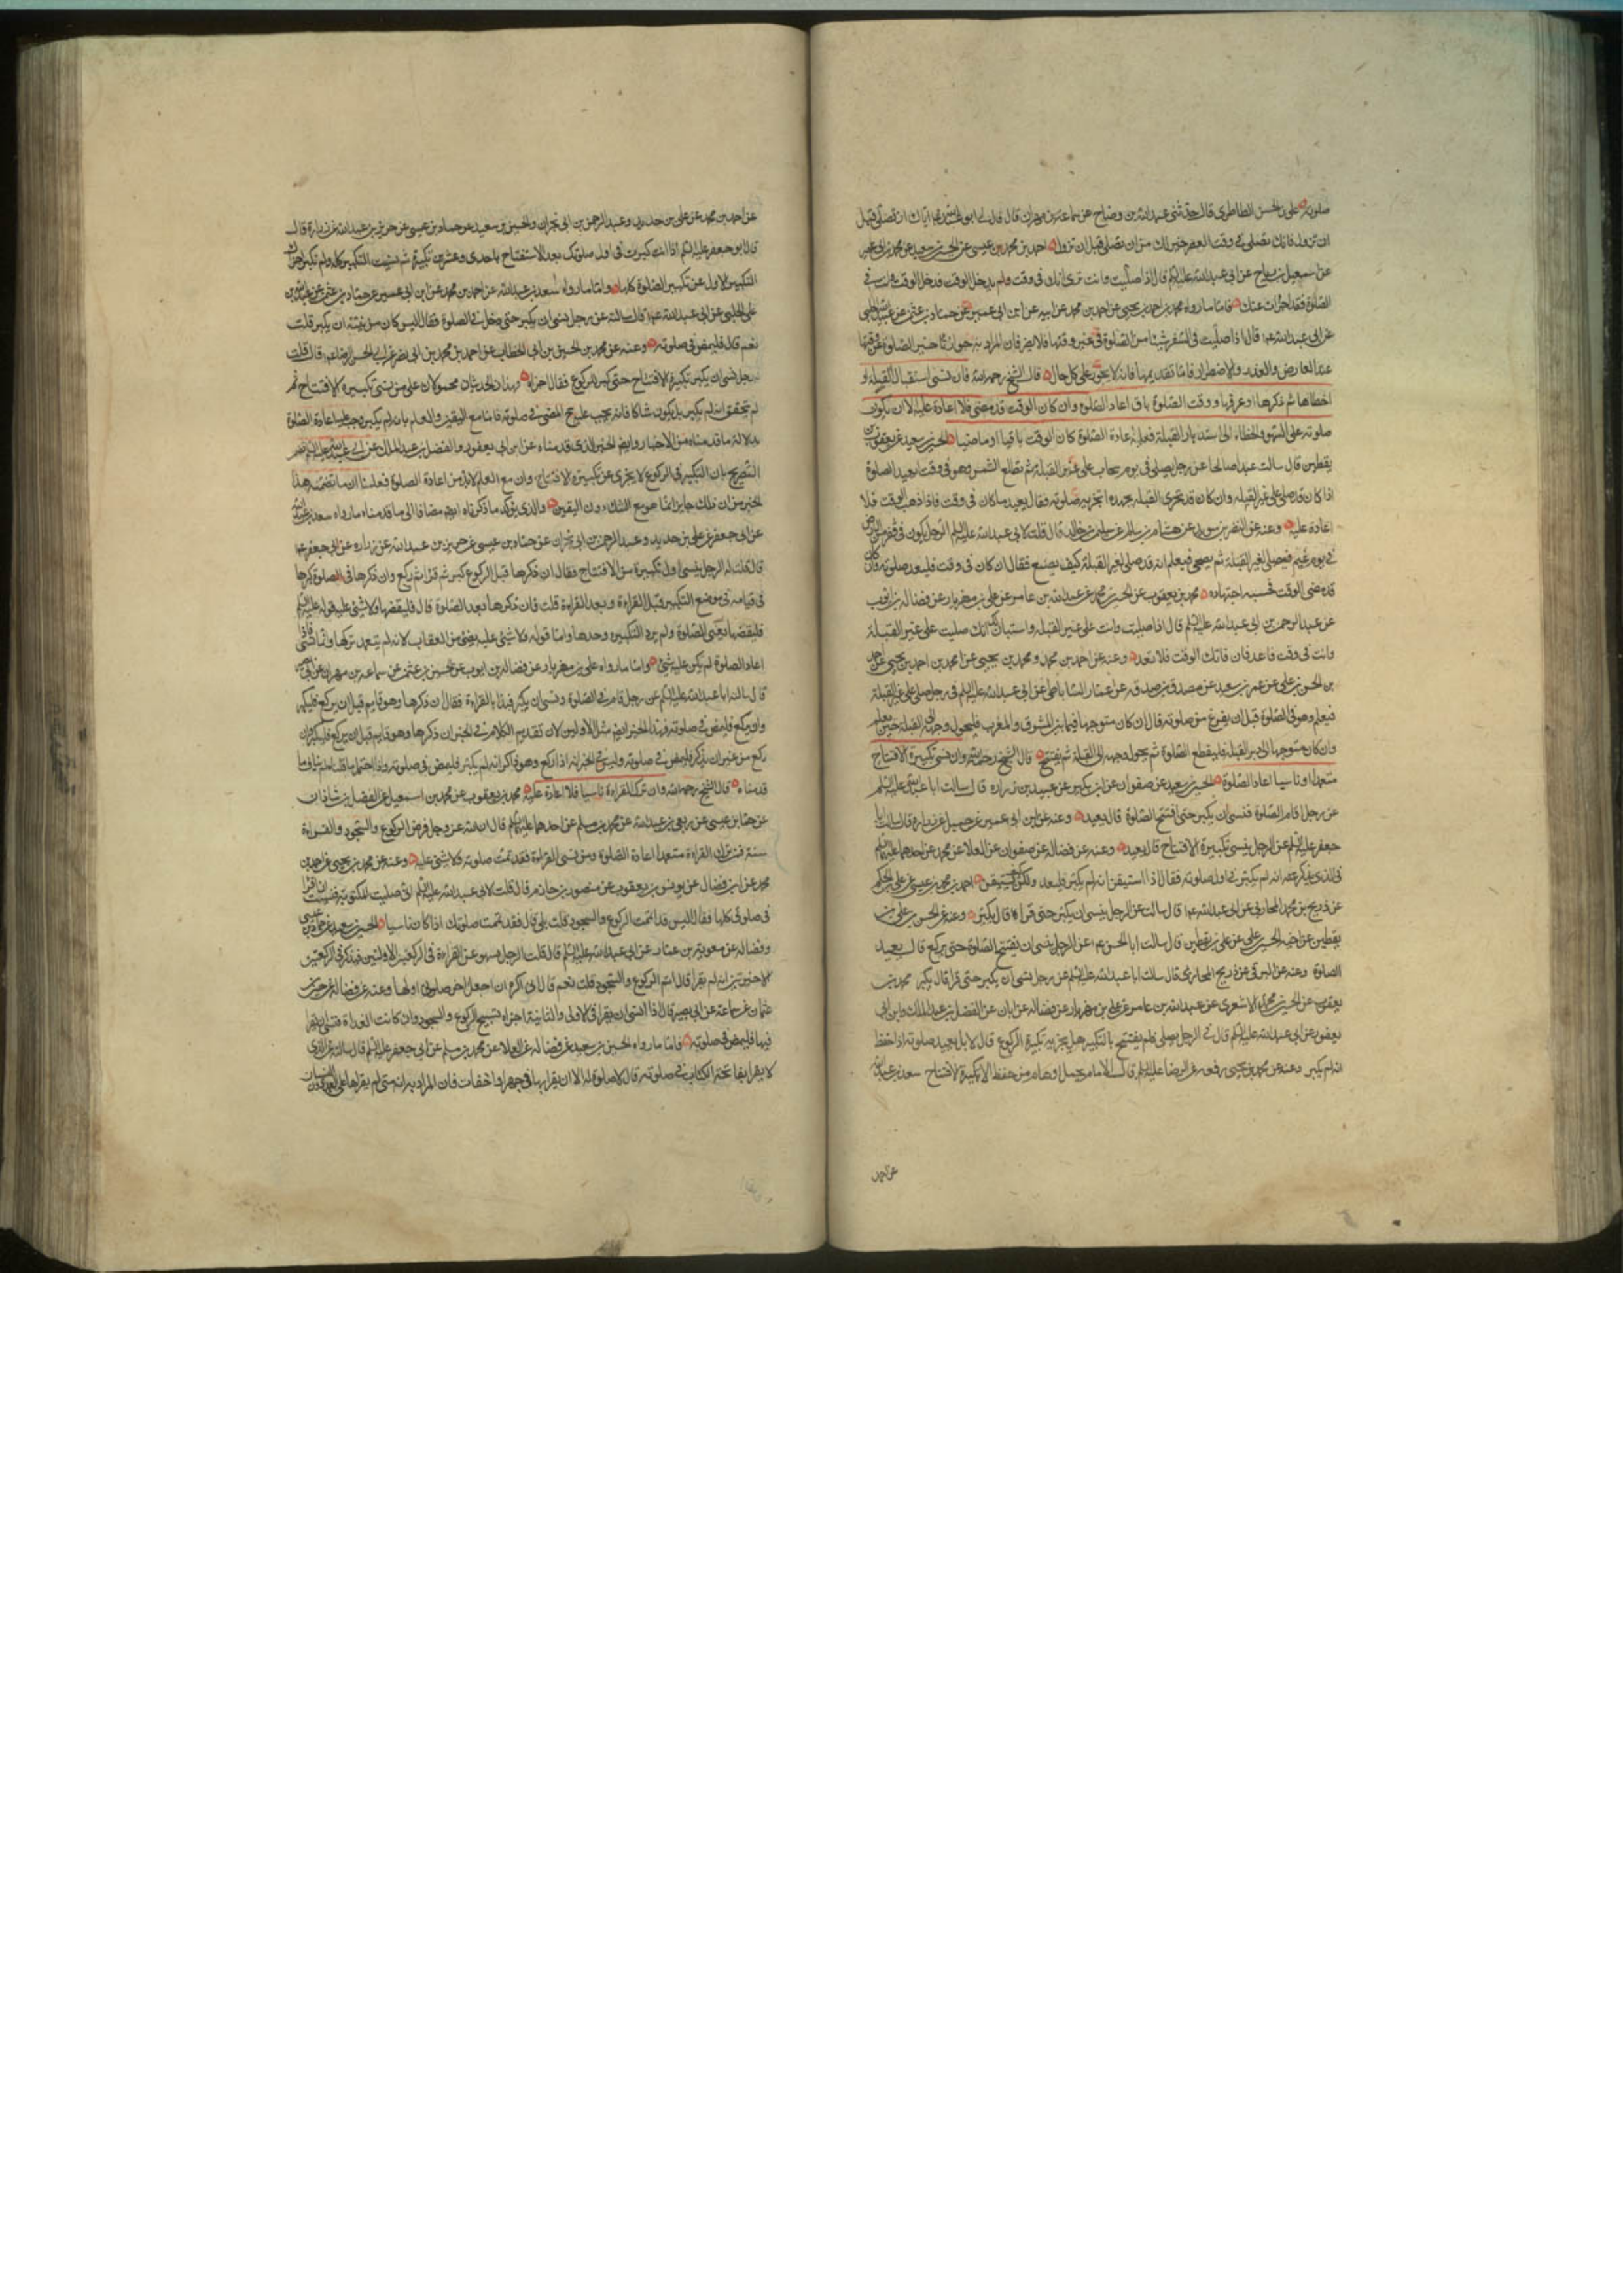 صلوته علی بن الحسن الطاطری قال حدثنی عبدالله بن وضاح عن سماعة بن مهران قال قال لی ابو عبدالله ع ایاک ان تصلی قبل
ان تزول فانک تصلی فی وقت العصر خیر لک من ان تصلی قبل ان تزول احمد بن محمد بن عیسی عن الحسین بن سعید عن محمد بن ابی عمیر
عن اسمعیل بن رباح عن ابی عبدالله علیه السلام قال اذا صلیت وانت تری انک فی وقت ولم یدخل الوقت فدخل الوقت وانت فی
الصلوة فقد اجزات عنک فاما ما رواه محمد بن احمد بن یحیی عن احمد بن محمد عن ابیه عن ابن ابی عمیر عن حماد بن عثمن عن عبیدالله الحلبی
عن ابی عبدالله ع قال اذا صلیت فی السفر شیئا من الصلوة فی غیر وقتها فلا یضر فان المراد به جواز تاخیر الصلوة عن وقتها
عند العارض والعذر والاضطرار فاما تقدیمها فانه لا یجوز علی کل حال قال الشیخ رحمه الله فان نسی استقبال القبلة او
اخطاها ثم ذکرها او عرفها ووقت الصلوة باق اعاد الصلوة وان کان الوقت قد مضی فلا اعادة علیه الا ان یکون
صلوته علی السهو والخطاء الی استدبار القبلة فعلیه اعادة الصلوة کان الوقت باقیا او ماضیا الحسین بن سعید عن یعقوب بن
یقطین قال سالت عبدا صالحا عن رجل یصلی فی یوم سحاب علی غیر القبلة ثم تطلع الشمس وهو فی وقت ایعید الصلوة
اذا کان قد صلی علی غیر القبلة وان کان قد تحری القبلة بجهده اتجزیه صلوته فقال یعید ما کان فی وقت فاذا ذهب الوقت فلا
اعادة علیه وعنه عن النضر بن سوید عن هشام بن سالم عن سلیمن بن خالد قال قلت لابی عبدالله علیه السلام الرجل یکون فی قفر من الارض
فی یوم غیم فیصلی لغیر القبلة ثم یصحی فیعلم انه قد صلی لغیر القبلة کیف یصنع فقال ان کان فی وقت فلیعد صلوته فان کان
قد مضی الوقت فحسبه اجتهاده محمد بن یعقوب عن الحسین بن محمد عن عبدالله بن عامر عن علی بن مهزیار عن فضالة بن ایوب
عن عبد الرحمن بن ابی عبدالله علیه السلام قال اذا صلیت وانت علی غیر القبلة واستبان لک انک صلیت علی غیر القبلة
وانت فی وقت فاعد فان فاتک الوقت فلا تعد وعنه عن احمد بن محمد ومحمد بن یحیی عن محمد بن احمد بن یحیی عن احمد
بن الحسن بن علی عن عمرو بن سعید عن مصدق بن صدقة عن عمار الساباطی عن ابی عبدالله علیه السلام فی رجل صلی علی غیر القبلة
فیعلم وهو فی الصلوة قبل ان یفرغ من صلوته قال ان کان متوجها فیما بین المشرق والمغرب فلیحول وجهه الی القبلة حین یعلم
وان کان متوجها الی دبر القبلة فلیقطع الصلوة ثم یحول وجهه الی القبلة ثم یفتتح قال الشیخ رحمه الله وان نسی تکبیرة الافتتاح
متعمدا او ناسیا اعاد الصلوة الحسین بن سعید عن صفوان عن ابن بکیر عن عبید بن زرارة قال سالت ابا عبدالله علیه السلم
عن رجل اقام الصلوة فنسی ان یکبر حتی افتتح الصلوة قال یعید وعنه عن ابن ابی عمیر عن جمیل عن زرارة قال سالت ابا
جعفر علیه السلم عن الرجل ینسی تکبیرة الافتتاح قال یعید وعنه عن فضالة عن صفوان عن العلا عن محمد عن احدهما علیهما السلم
فی الذی یذکر انه لم یکبر فی اول صلوته فقال اذا استیقن انه لم یکبر فلیعد ولکن کیف یستیقن احمد بن محمد بن عیسی عن علی بن الحکم
عن ذریح بن محمد المحاربی عن ابی عبدالله ع قال سالته عن الرجل ینسی ان یکبر حتی قرا قال یکبر وعنه عن الحسن بن علی بن
یقطین عن اخیه الحسین بن علی عن علی بن یقطین قال سالت ابا الحسن ع عن الرجل ینسی ان یفتتح الصلوة حتی یرکع قال یعید
الصلوة وعنه عن البرقی عن ذریح المحاربی قال سالت ابا عبدالله علیه السلم عن رجل نسی ان یکبر حتی قرا قال یکبر محمد بن
یعقوب عن الحسین بن محمد الاشعری عن عبدالله بن عامر عن علی بن مهزیار عن فضالة عن ابان عن الفضل بن عبد الملک وابن ابی
یعفور عن ابی عبدالله علیه السلم قال فی الرجل یصلی فلم یفتتح بالتکبیر هل یجزیه تکبیرة الرکوع قال لا بل یعید صلوته اذا حفظ
انه لم یکبر وعنه عن محمد بن یحیی رفعه عن الرضا علیه السلم قال الامام یحمل اوهام من خلفه الا تکبیرة الافتتاح سعد بن عبدالله
عن احمد
عن احمد بن محمد عن علی بن حدید وعبد الرحمن بن ابی نجران والحسین بن سعید عن حماد بن عیسی عن حریز بن عبدالله عن زرارة قال
قال ابو جعفر علیه السلم اذا انت کبرت فی اول صلوتک بعد الاستفتاح باحدی وعشرین تکبیرة ثم نسیت التکبیر کله ولم تکبر اجزاک
التکبیر الاول عن تکبیر الصلوة کلها واما ما رواه سعد بن عبدالله عن احمد بن محمد عن ابن ابی عمیر عن حماد بن عثمن عن عبیدالله بن
علی الحلبی عن ابی عبدالله ع قال سالته عن رجل نسی ان یکبر حتی دخل فی الصلوة فقال الیس کان من نیته ان یکبر قلت
نعم قال فلیمض فی صلوته وعنه عن محمد بن الحسین بن ابی الخطاب عن احمد بن محمد بن ابی نصر عن ابی الحسن الرضا ع قال قلت
رجل نسی ان یکبر تکبیرة الافتتاح حتی کبر للرکوع فقال اجزاه وهذان الحدیثان محمولان علی من نسی تکبیرة الافتتاح ثم
لم یتحقق انه لم یکبر بل یکون شاکا فانه یجب علیه ح المضی فی صلوته فاما مع الیقین والعلم بانه لم یکبر وجب علیه اعادة الصلوة
بدلالة ما قدمناه من الاخبار وایضا الخبر الذی قدمناه عن ابن ابی یعفور والفضل بن عبد الملک عن ابی عبدالله علیه السلم تضمن
التصریح بان التکبیر فی الرکوع لا یجزی عن تکبیرة الافتتاح وان مع العلم لابد من اعادة الصلوة فعلمنا ان ما تضمنه هذا
الخبر من ان ذلک جایز انما هو مع الشک دون الیقین والذی یؤکد ما ذکرناه ایضا مضافا الی ما قدمناه ما رواه سعد بن عبدالله
عن ابی جعفر عن علی بن حدید وعبد الرحمن بن ابی نجران عن حماد بن عیسی عن حریز بن عبدالله عن زرارة عن ابی جعفر ع
قال قلت له الرجل ینسی اول تکبیرة من الافتتاح فقال ان ذکرها قبل الرکوع کبر ثم قرا ثم رکع وان ذکرها فی الصلوة کبرها
فی قیامه فی موضع التکبیر قبل القراءة وبعد القراءة قلت فان ذکرها بعد الصلوة قال فلیقضها ولا شئ علیه قوله علیه السلم
فلیقضها یعنی الصلوة ولم یرد التکبیرة وحدها واما قوله فلا شئ علیه یعنی من العقاب لانه لم یتعمد ترکها وانما نسی فاذا
اعاد الصلوة لم یکن علیه شئ واما ما رواه علی بن مهزیار عن فضالة بن ایوب عن حسین بن عثمن عن سماعة بن مهران عن ابی بصیر
قال سالت ابا عبدالله علیه السلم عن رجل قام فی الصلوة ونسی ان یکبر فبدا بالقراءة فقال ان ذکرها وهو قایم قبل ان یرکع فلیکبر
وان رکع فلیمض فی صلوته فهذا الخبر ایضا مثل الاولین لان تقدیم الکلام فی الخبر ان ذکرها وهو قایم قبل ان یرکع فلیکبر وان
رکع من غیر ان یذکر فلیمض فی صلوته ولیس فی الخبر انه اذا رکع وهو ذاکر انه لم یکبر فلیمض فی صلوته واذا احتمل ما قلناه لم یناف ما
قدمناه قال الشیخ رحمه الله وان ترک القراءة ناسیا فلا اعادة علیه محمد بن یعقوب عن محمد بن اسمعیل عن الفضل بن شاذان
عن حماد بن عیسی عن ربعی بن عبدالله عن محمد بن مسلم عن احدهما علیهما السلم قال ان الله عز وجل فرض الرکوع والسجود والقراءة
سنة فمن ترک القراءة متعمدا اعاد الصلوة ومن نسی القراءة فقد تمت صلوته فلا شئ علیه وعنه عن محمد بن یحیی عن احمد بن
محمد عن ابن فضال عن یونس بن یعقوب عن منصور بن حازم قال قلت لابی عبدالله علیه السلم انی صلیت المکتوبة فنسیت ان اقرا
فی صلوتی کلها فقال الیس قد اتممت الرکوع والسجود قلت بلی قال فقد تمت صلوتک اذا کان ناسیا الحسین بن سعید عن حماد بن عیسی
وفضالة عن معویة بن عمار عن ابی عبدالله علیه السلم قال قلت الرجل یسهو عن القراءة فی الرکعتین الاولتین فیذکر فی الرکعتین
الاخیرتین انه لم یقرا قال اتم الرکوع والسجود قلت نعم قال انی اکره ان اجعل اخر صلوتی اولها وعنه عن فضالة عن حسین بن
عثمان عن سماعة عن ابی بصیر قال اذا نسی ان یقرا فی الاولی والثانیة اجزاه تسبیح الرکوع والسجود وان کانت الغداة فنسی ان یقرا
فیها فلیمض فی صلوته فاما ما رواه الحسین بن سعید عن فضالة عن العلا عن محمد بن مسلم عن ابی جعفر علیه السلم قال سالته عن الذی
لا یقرا بفاتحة الکتاب فی صلوته قال لا صلوة له الا ان یقرا بها فی جهر او اخفات فان المراد به انه متی لم یقراها علی العمد دون النسیان